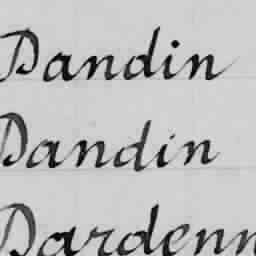 Dandin
Dandin
Dardenn